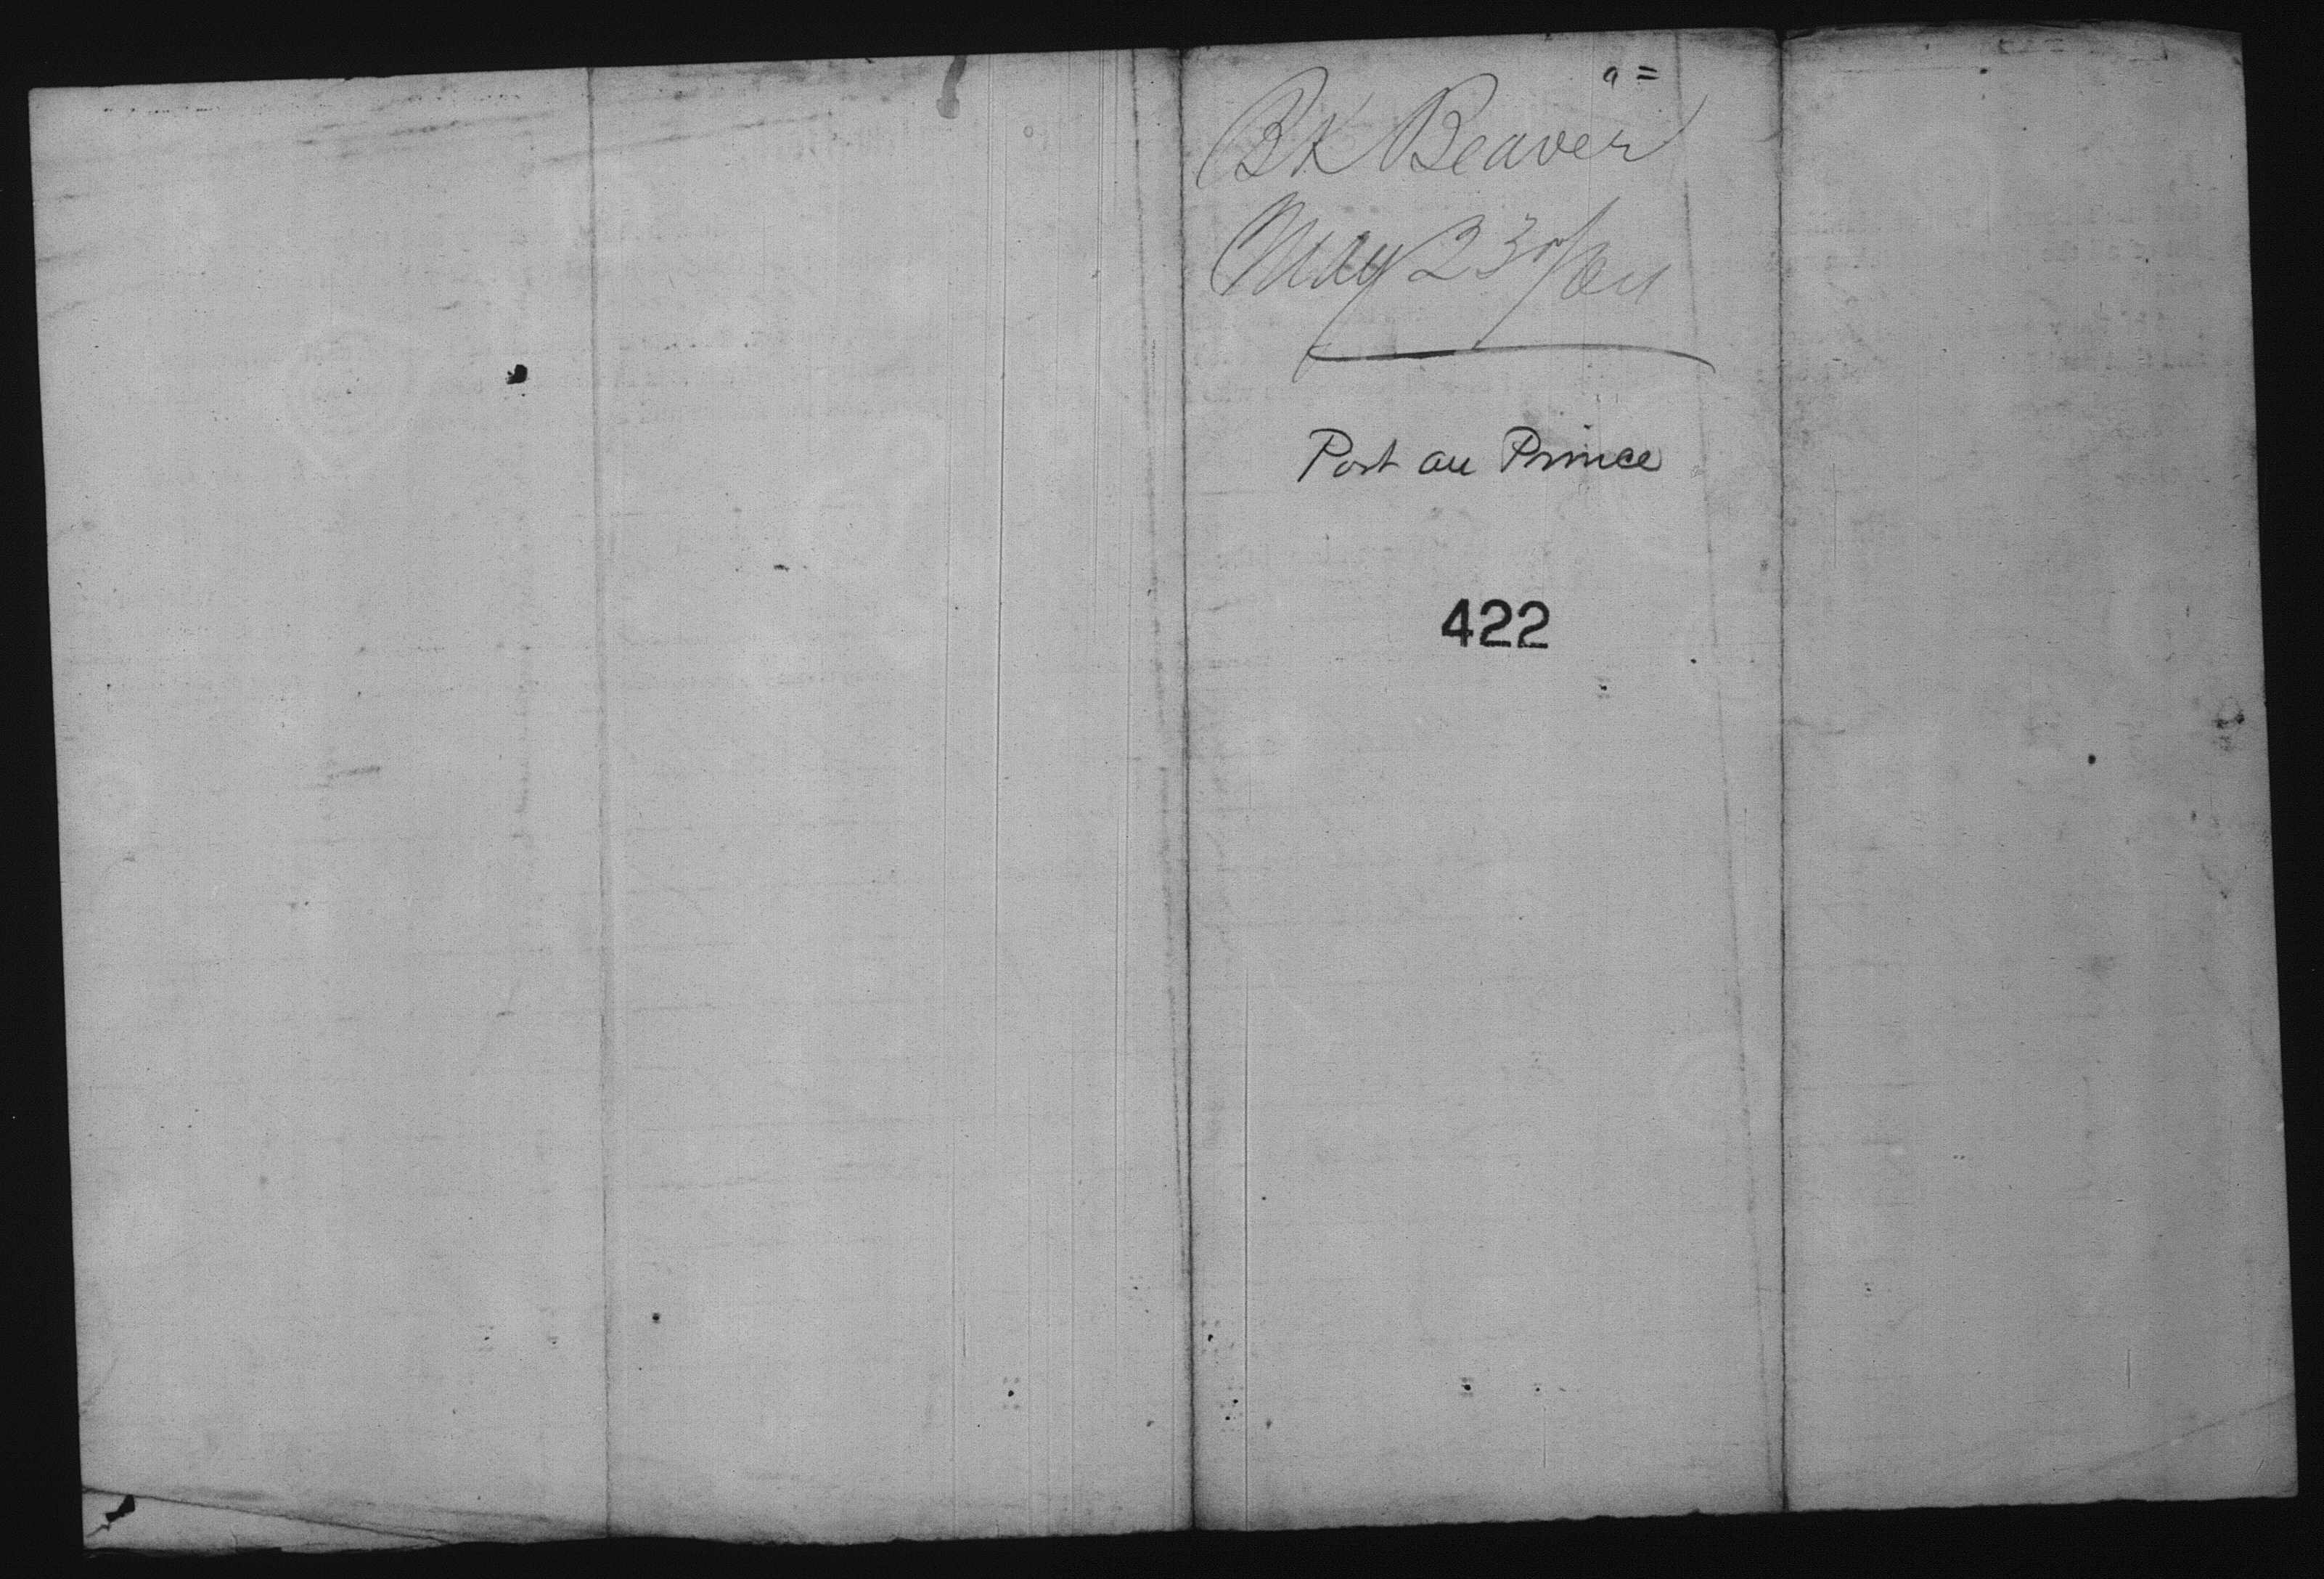 a =
BK Beaver
May 23
Port au Prince
422